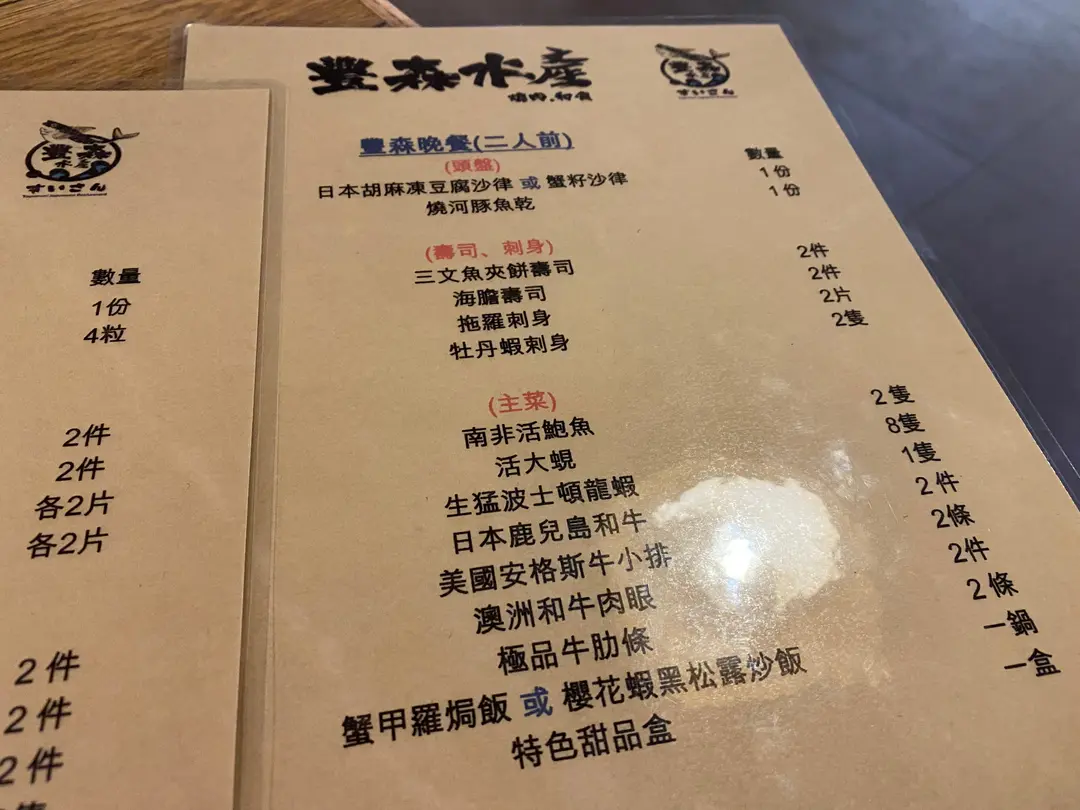 豐森水產
燒肉.和食
豐森
水產
すいさん
豐森晚餐(二人前)
(頭盤) 數量
日本胡麻凍豆腐沙律 或 蟹籽沙律 1份
燒河豚魚乾 1份
(壽司、刺身)
三文魚夾餅壽司 2件
海膽壽司 2件
拖羅刺身 2片
牡丹蝦刺身 2隻
(主菜)
南非活鮑魚 2隻
活大蜆 8隻
生猛波士頓龍蝦 1隻
日本鹿兒島和牛 2件
美國安格斯牛小排 2條
澳洲和牛肉眼 2件
極品牛肋條 2條
蟹甲羅焗飯 或 櫻花蝦黑松露炒飯 一鍋
特色甜品盒 一盒
豐森
水產
すいさん
數量
1份
4粒
2件
2件
各2片
各2片
2件
2件
2件